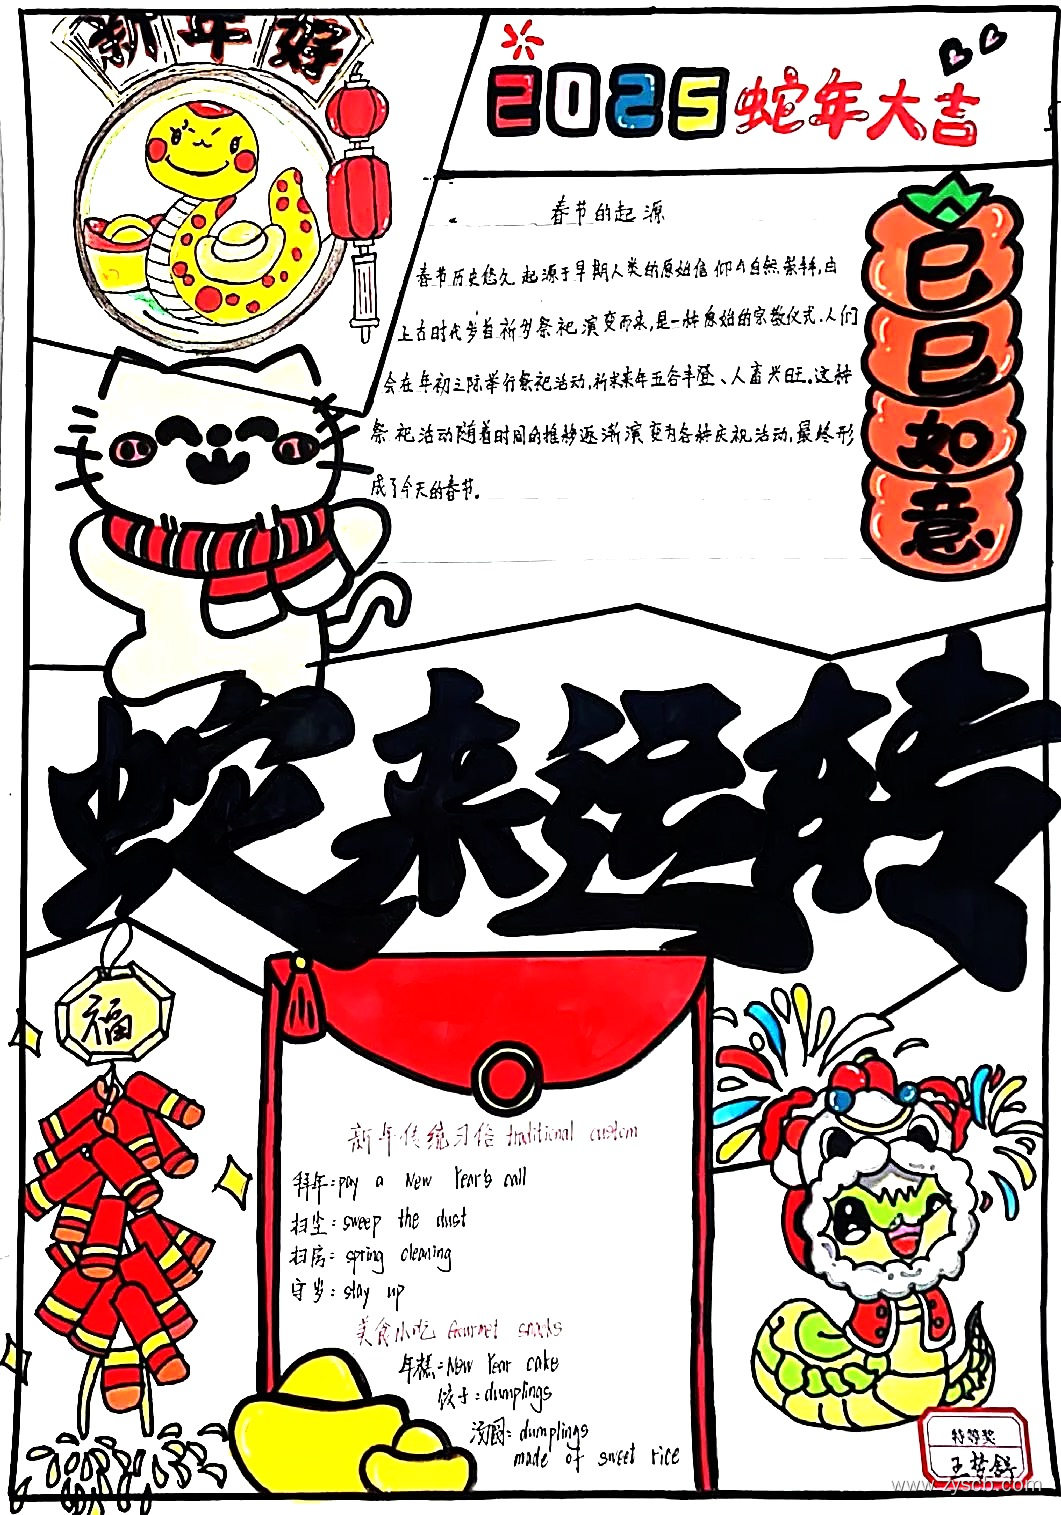 新年好
2025蛇年大吉
春节的起源
春节历史悠久，起源于早期人类的原始信仰与自然崇拜，由
上古时代岁首祈岁祭祀演变而来，是一种原始的宗教仪式，人们
会在年初之际举行祭祀活动，祈求来年五谷丰登、人畜兴旺。这种
祭祀活动随着时间的推移逐渐演变为各种庆祝活动，最终形
成了今天的春节。
巳
巳
如
意
蛇来运转
福
新年传统习俗 traditional custom
拜年：pay a New Year's call
扫尘：sweep the dust
扫房：spring cleaning
守岁：stay up
美食小吃 Gourmet snacks
年糕：New Year cake
饺子：dumplings
汤圆：dumplings
made of sweet rice
特等奖
王梦舒
www.zyscb.com